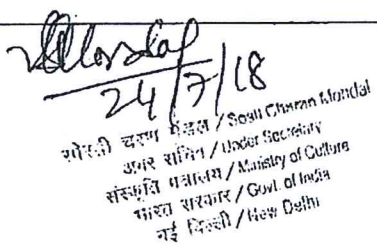 24/7/18
चरण मंडल / Charan Mondal
अवर सचिव / Under Secretary
संस्कृति मंत्रालय / Ministry of Culture
भारत सरकार / Govt. of India
नई दिल्ली / New Delhi